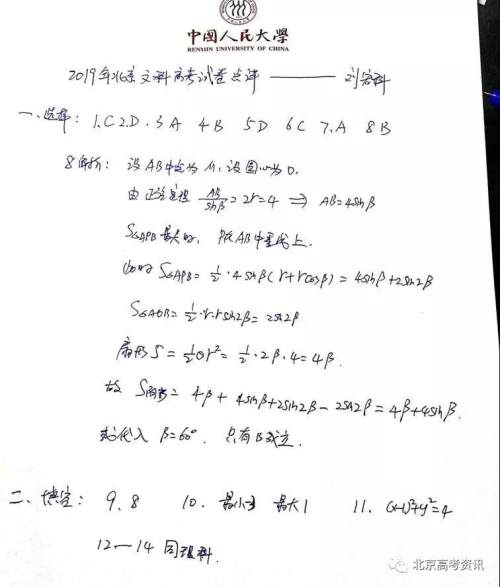 中国人民大学
RENMIN UNIVERSITY OF CHINA
2019年北京文科高考试卷点评 —— 刘客科
一、选择: 1.C 2.D. 3A 4B 5D 6C 7.A 8B
8解析: 设AB中点为M,设圆心为O,
由正弦定理 AB/sinβ = 2r = 4 ⇒ AB=4sinβ
S△APB最大时, P在AB中垂线上.
此时 S△APB = 1/2·4sinβ(r+rcosβ) = 4sinβ+2sin2β
S△AOB = 1/2·r·r sin2β = 2sin2β
扇形S = 1/2θr² = 1/2·2β·4 = 4β.
故 S阴影 = 4β + 4sinβ+2sin2β - 2sin2β = 4β+4sinβ.
代入 β=60°. 只有B成立.
二、填空: 9、8 10. 最小-3 最大1 11. (x-1)²+y²=4
12—14 同理科.
北京高考资讯